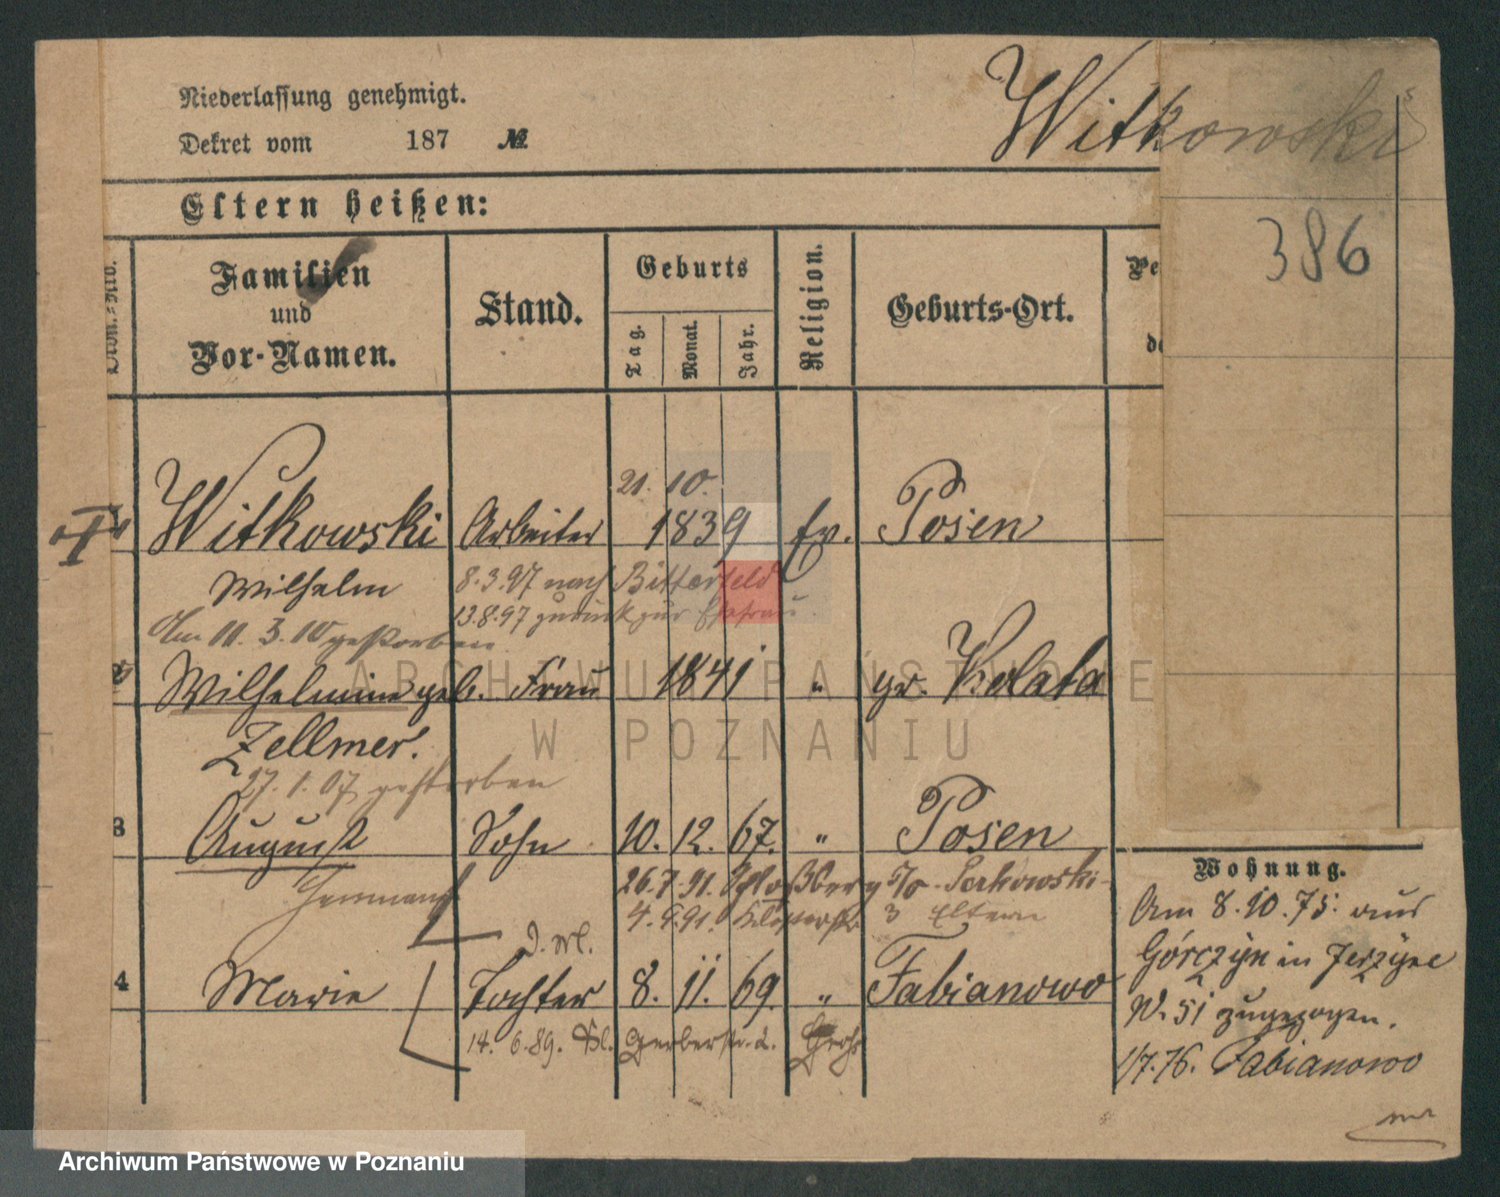 Niederlassung genehmigt.
Dekret vom 187 №
Witkowski
386
Eltern heißen:
Familien und Vor-Namen.
Stand.
Geburts
Tag.
Monat.
Jahr.
Religion.
Geburts-Ort.
21. 10.
Witkowski Arbeiter 1839 ev. Posen
Wilhelm 8.3.97 nach Bitterfeld
13.8.97 zurück zur Ehefrau
Am 11. 3. 10 gestorben
Wilhelmine geb. Frau 1841 " gr. Kolata
Zellmer.
27. 1. 07 gestorben
3 August Sohn 10. 12. 67. " Posen
Hermann 26.7.91.
4. 9.91. 3 Eltern
4 Marie Tochter 8. 11. 69. " Fabianowo
14. 6. 89. Gerberstr. 2.
Wohnung.
Am 8.10.75. aus
Górczyn in Jerzyce
N. 51 zugezogen.
1/7.76. Fabianowo
ARCHIWUM PAŃSTWOWE
W POZNANIU
Archiwum Państwowe w Poznaniu